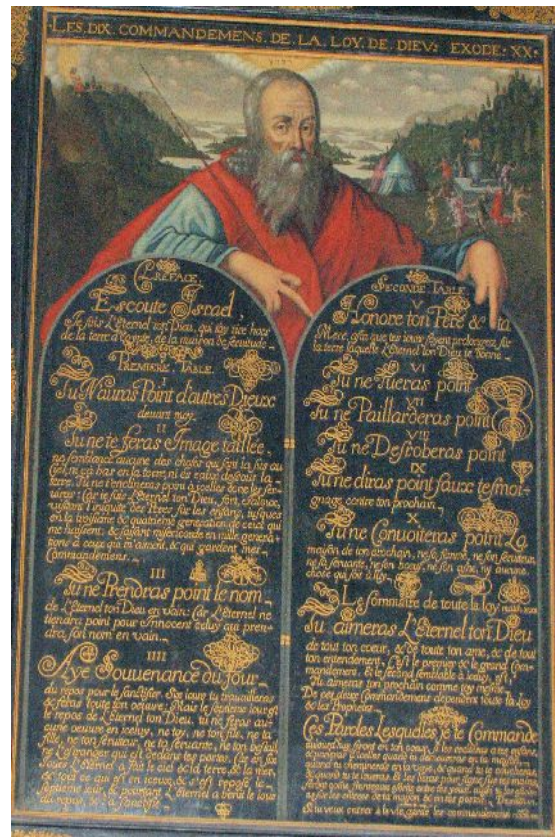 LES. DIX. COMMANDEMENS. DE. LA. LOY. DE. DIEV: EXODE: XX:
PREFACE
Escoute Israel,
Je suis L'Eternel ton Dieu, qui t'ay tiré hors
de la terre d'Egypte, de la maison de servitude
PREMIERE. TABLE.
I
Tu N'auras Point d'autres Dieux
devant moy.
II
Tu ne te feras Image taillée,
ne semblance aucune des choses qui sont là sus au
Ciel, ny çà bas en la terre, ni és eaux dessous la
terre. Tu ne t'enclineras point à icelles & ne les ser-
viras: Car je suis L'Eternel ton Dieu, fort, jaloux,
visitant l'iniquité des Peres sur les enfans, jusques
en la troisieme & quatrieme generation de ceux qui
me haïssent: & faisant misericorde en mille genera-
tions à ceux qui m'aiment, & qui gardent mes
Commandemens.
III
Tu ne Prendras point le nom
de L'Eternel ton Dieu en vain: Car L'Eternel ne
tiendra point pour Innocent celuy qui pren-
dra son nom en vain.
IIII
Aye Souvenance du Jour
du repos pour le sanctifier. Six jours tu travailleras
& feras toute ton oeuvre: Mais le septieme jour est
le repos de L'Eternel ton Dieu. tu ne feras au-
cune oeuvre en iceluy, ne toy, ne ton fils, ne ta
fille, ne ton serviteur, ne ta servante, ne ton bestail,
ne L'estranger qui est dedans tes portes. Car en six
jours L'Eternel a fait le ciel & la terre, & la mer,
& tout ce qui est en iceux, & s'est reposé le
septieme jour, & pourtant L'Eternel a benit le jour
du repos, & l'a sanctifié.
SECONDE. TABLE
V
Honore ton Pere & ta
Mere, afin que tes jours soyent prolongez sur
la terre laquelle L'Eternel ton Dieu te donne.
VI
Tu ne Tueras point
VII
Tu ne Paillarderas point
VIII
Tu ne Desroberas point
IX
Tu ne diras point faux tesmoi-
gnage contre ton prochain.
X
Tu ne Convoiteras point La
mayson de ton prochain, ne sa femme, ne son serviteur,
ne sa servante, ne son boeuf, ne son asne, ny aucune
chose qui soit à luy.
Le Sommaire de toute la loy
Tu aimeras L'Eternel ton Dieu
de tout ton coeur, & de toute ton ame, & de tout
ton entendement. C'est le premier & le grand Com-
mandement. Et le second semblable à iceluy, est,
Tu aimeras ton prochain comme toy mesme.
De ces deux Commandemens dependent toute la Loy
& les Prophetes.
Ces Paroles Lesquelles je te Commande
aujourd'huy seront en ton coeur,